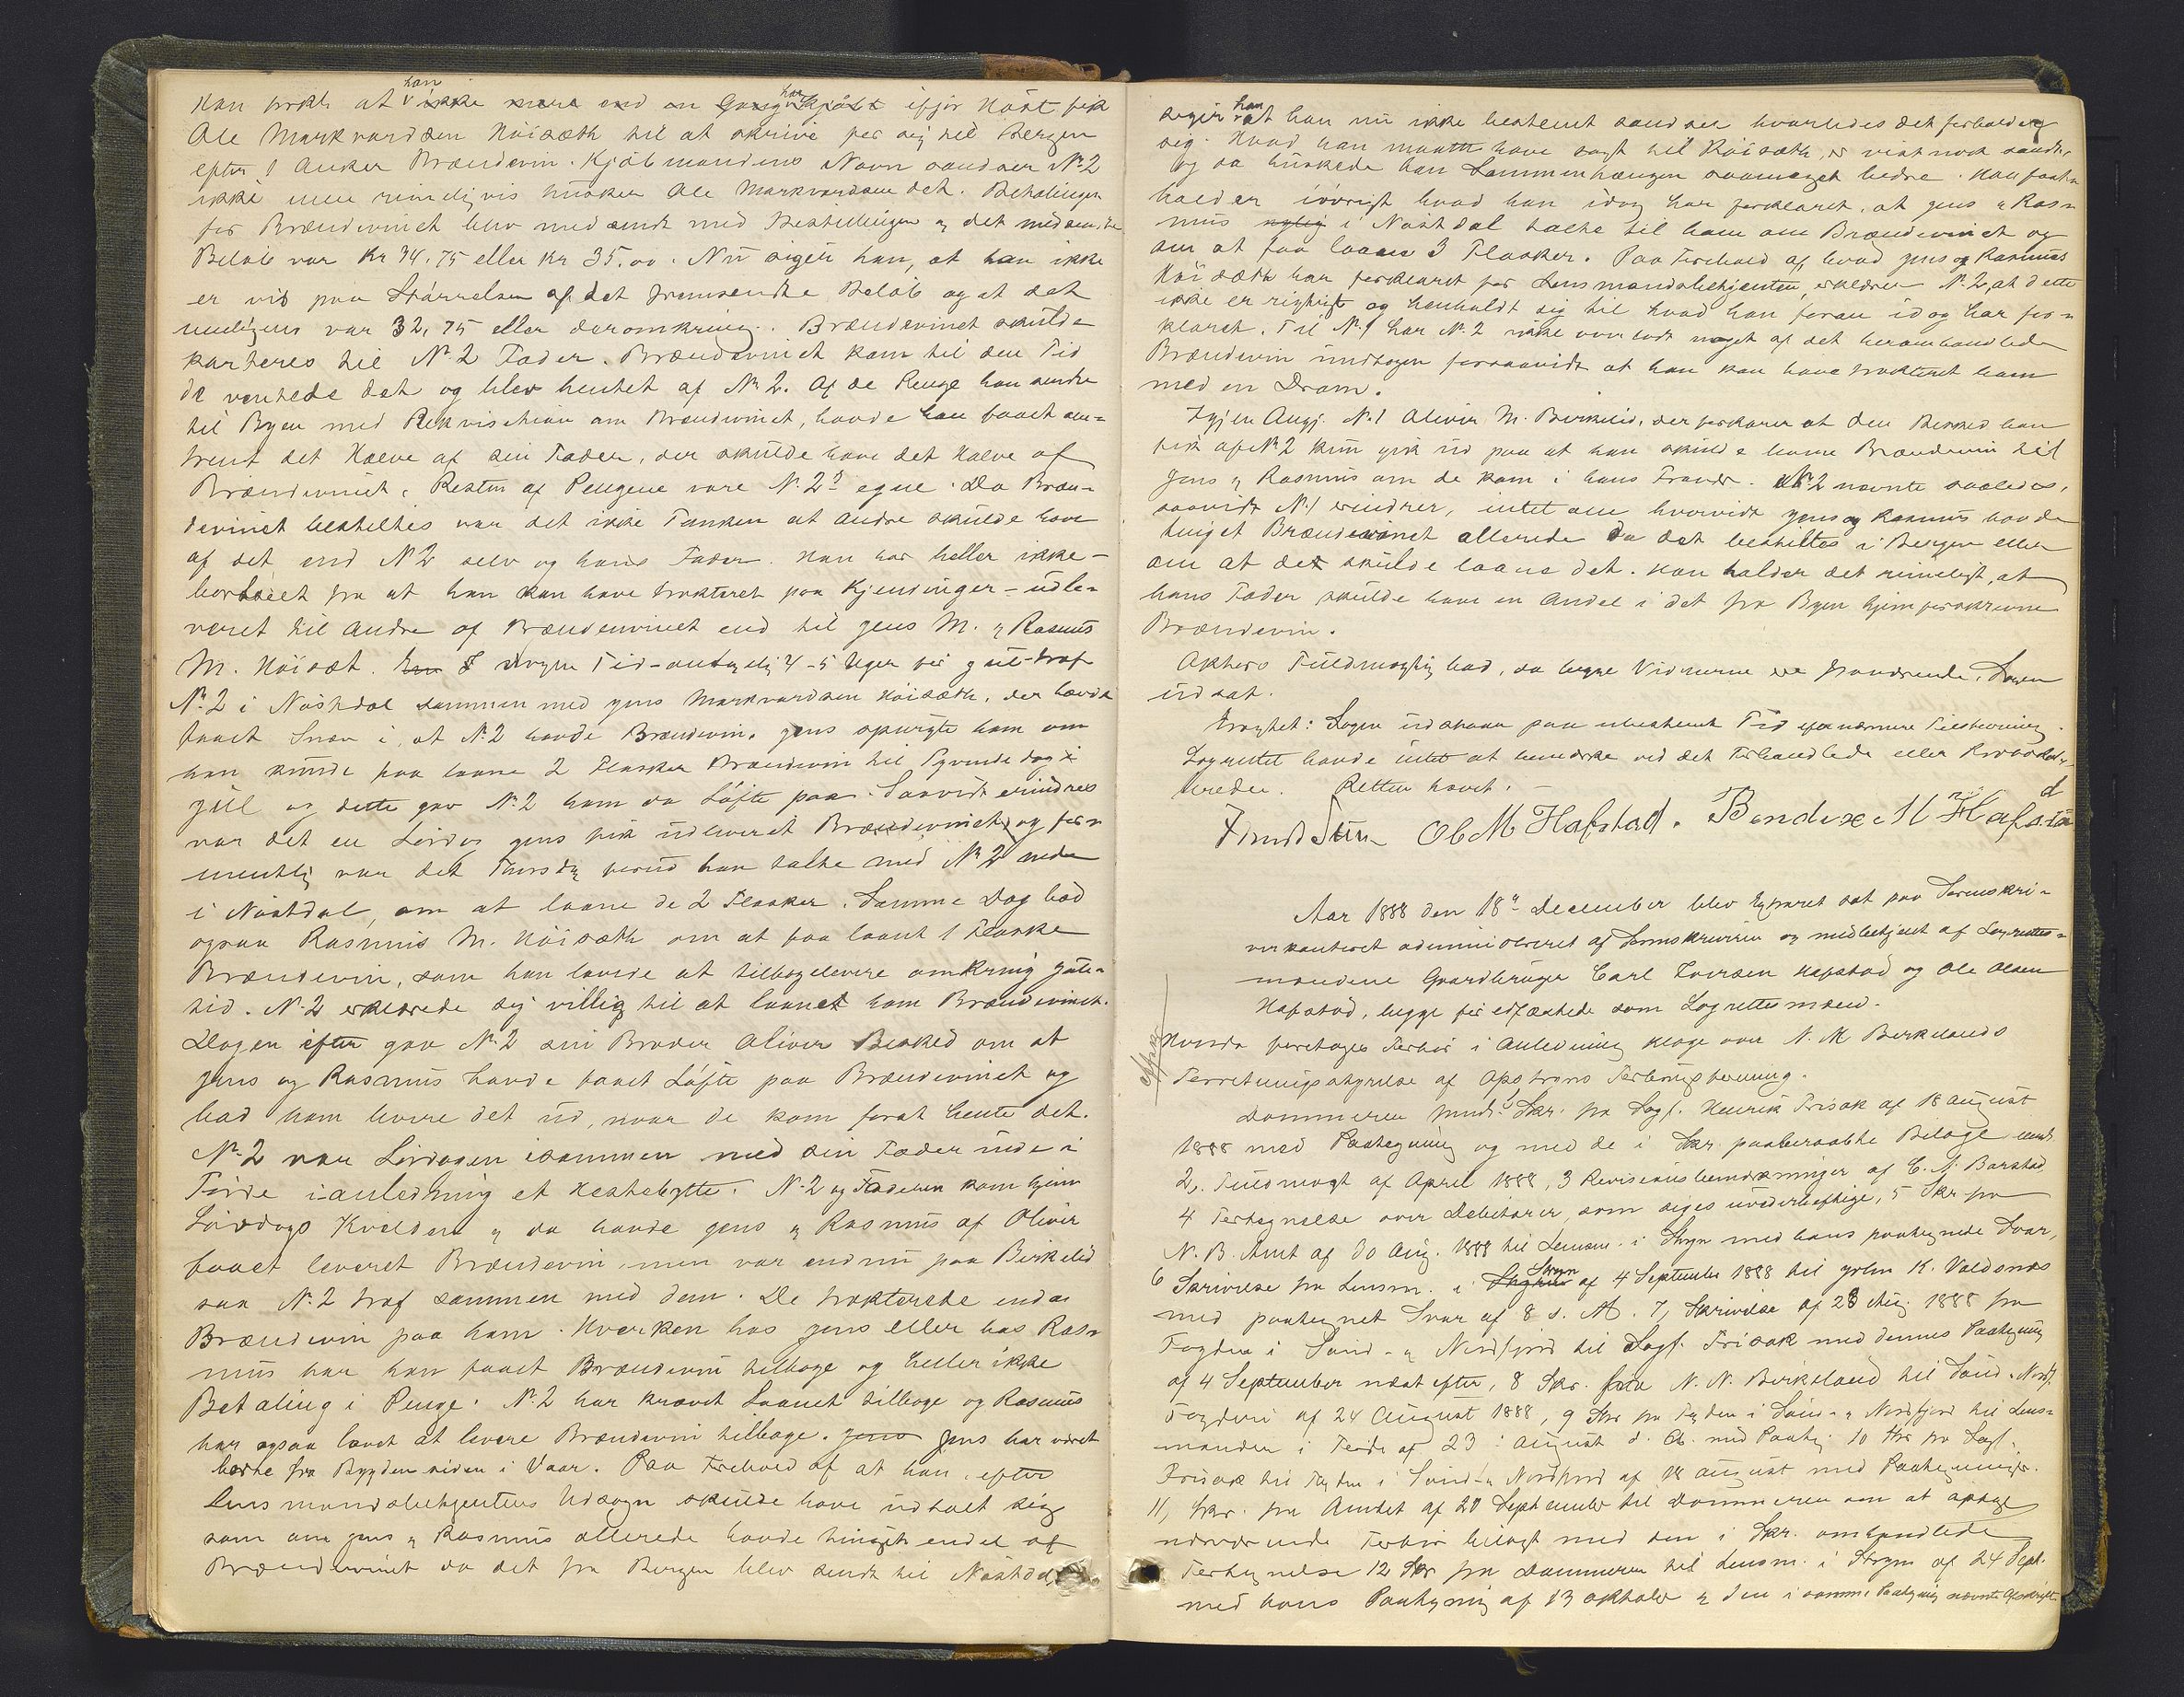 han
Han forkl. at ikke mere end en Gang har kjøbt ifjor Høst fik
Ole Markvardsen Höisæth til at skrive for sig til Bergen
efter 1 Anker Brændevin. Kjöbmandens Navn sandser No 2
ikke men rimeligvis husker Ole Markvardsen det. Betalingen
for Brændevinet blev medsendt med Bestillingen og det medsendte
Belöb var Kr 34.75 eller Kr 35.00. Nu siger han, at han ikke
er vis paa Störrelsen af det fremsendte Belöb og at det
muligens var 32,75 eller deromkring. Brændevinet skulde
karteres til No 2 Fader. Brændevinet kom til den Tid
de ventede det og blev hentet af No 2. Af de Penge han sendte
til Byen med Rekvisition om Brændevinet, havde han faaet om-
trent det Halve af sin Fader, der skulde have det Halve af
Brændevinet. Resten af Pengene vare No 2s egne. Da Bræn-
devinet bestiltes var det ikke Tanken at Andre skulde have
af det end No 2 selv og hans Fader. Han har heller ikke -
bortseet fra at han kan have trakteret paa Kjendinger - udle-
veret til Andre af Brændevinet end til Jens M. og Rasmus
M. Höisæt. Tid - antagelig 4-5 Uger før Jul - traf
No 2 i Nöstdal sammen med Jens Markvardsen Höisæth, der havde
faaet Snæv i, at No 2 havde Brændevin. Jens spurgte ham om
han kunde faa laane 2 Flasker Brændevin til Tyvende dag i
Jul og dette gav No 2 ham da Löfte paa. Saavidt erindres
var det en Lördag Jens fik udleveret Brændevinet og for-
mentlig var det Thorsdag forud han talte med No 2 nede
i Nöstdal, om at laane de 2 Flasker. Samme Dag bad
ogsaa Rasmus M. Höisæth om at faa laant 1 Flaske
Brændevin, som han lovede at tilbagelevere omkring Jule-
tid. No 2 erklærede sig villig til at laanet ham Brændevinet.
Dagen efter gav No 2 sin Broder Oliver Besked om at
Jens og Rasmus havde faaet Löfte paa Brændevinet og
bad ham levere det ud, naar de kom forat hente det.
No 2 var Lördagen isammen med sin Fader inde i
Förde i anledning et Hestebytte. No 2 og Faderen kom hjem
Lördags Kvelden og da havde Jens og Rasmus af Oliver
faaet leveret Brændevin, men var endnu paa Birkelid
saa No 2 traf sammen med dem. De trakterede endog
Brændevin paa ham. Hverken hos Jens eller hos Ras-
mus har han faaet Brændevin tilbage og heller ikke
Betaling i Penge. No 2 har krævet Laanet tilbage og Rasmus
har ogsaa lovet at levere Brændevin tilbage. Jens Jens har været
borte fra Bygden siden i Vaar. Paa Forehold af at han, efter
Lensmandsbetjentens Udsagn skulde have udtalt sig
som om Jens og Rasmus allerede havde tinget endel af
Brændevinet da det fra Bergen blev sendt til Nöstdal,
siger han at han nu ikke bestemt sandser hvorledes det forholder
sig. Hvad han maatte have sagt til Höisæth, er vist nok sandt,
og da huskede han Sammenhængen saameget bedre. Han fast-
holder iövrigt hvad han idag har forklaret, at Jens og Ras-
mus nylig i Nöstdal talte til ham om Brændevinet og
om at faa laane 3 Flasker. Paa Forehold af, hvad Jens og Rasmus
Höisæth har forklaret for Lensmandsbetjenten, erklærer No 2, at dette
ikke er rigtigt og henholdt sig til hvad han foran idag har for-
klaret. Til No 1 har No 2 ikke overladt noget af det heromhandlede
Brændevin undtagen forsaavidt at han kan have trakteret ham
med en Dram.
Igjen Angj. No 1 Oliver M. Birkelid, der forklarer at den Besked han
fik af No 2 kun gik ud paa at han skulde levere Brændevin til
Jens og Rasmus om de kom i hans Fravær. No 2 nævnte saaledes,
saavidt No 1 erindrer, intet om hvorvidt Jens og Rasmus havde
tinget Brændevinet allerede da det bestiltes i Bergen eller
om at de skulde laane det. Han holder det rimeligt, at
hans Fader skulde have en Andel i det fra Byen hjemforskrevne
Brændevin.
Aktors Fuldmægtig bad, da begge Vidnerne ere fraværende, Sagen
udsat.
Eragtet: Sagen udstaar paa ubestemt Tid efter nærmere Tilstevning.
Lagrettet havde intet at bemærke ved det Forhandlede eller Protokol-
lerede. Retten hævet. -
Ol M Hafstad. Bendix M Hafstad
Aar 1888 den 18de December blev Extraret sat paa Sorenskri-
verkontoret administreret af Sorenskriveren og medbetjent af Lagrettes-
mændene Gaardbruger Carl Iversen Hafstad og Ole Olsen
Hafstad, begge før edfæstede som Lagrettesmænd.
Hvorda foretoges Forhör i Anledning Klage over N. M. Birkelands
Forretningsbestyrelse af Apostrons Forbrugsforening.
Dommeren fremlagde Skr. fra Sagf. Henrik Frisak af 18 August
1888 med Paategning og med de i Skr. paaberaabte Bilage
2. Fuldmagt af April 1888, 3 Revisionsbemærkninger af C. A. Barstad
4 Fortegnelse over Debitorer, som siges uvederheftige, 5 Skr fra
N. B. Amt af 30 Aug. 1888 til Lensm. i Stryn med hans paategnede Svar,
6 Skrivelse fra Lensm. i Stryn af 4 September 1888 til K. Valdsnæs
med paategnet Svar af 8 s. M. 7, Skrivelse af 28 Aug 1888 fra
Fogden i Sönd- og Nordfjord til Sagf. Frisak med dennes Paategning
af 4 September næst efter, 8 Skr. fra N. N. Birkeland til Sönd- Nordf.
Fogderi af 24 August 1888, 9 Skr fra Fogden i Sönd- og Nordfjord til Lens-
manden i Förde af 23 August d. A. med Paateg. 10 Skr fra Sagf.
Frisak til Fogden i Sönd- og Nordfjord af 18 August med Paategninger.
11, Skr. fra Amtet af 20 September til Dommeren om at optage
nærværende Forhör bilagt med den i Skr. omhandlede
Fortegnelse 12 Skr fra Dommeren til Lensm. i Stryn af 24 Sept.
med hans Paategning af 13 Oktober og den i samme Paategning nævnte Afskrift.